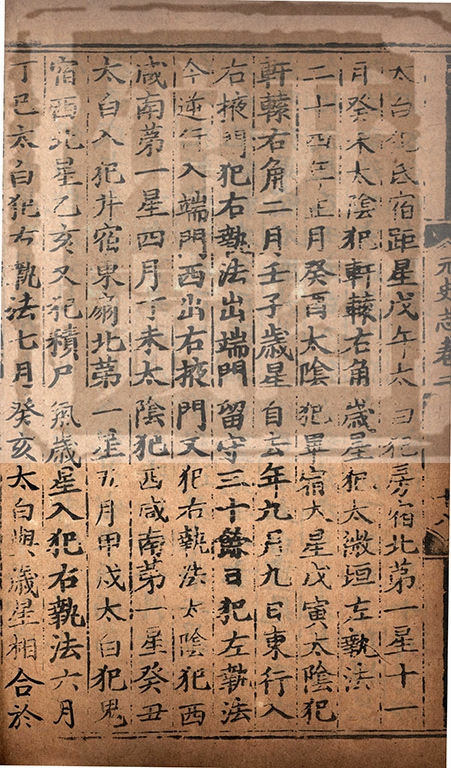 太白犯氐宿距星戊午太白犯房宿北第一星十一
月癸未太陰犯軒轅右角歲星犯太微垣左執法
二十四年正月癸酉太陰犯畢宿大星戊寅太陰犯
軒轅右角二月壬子歲星自去年九月九日東行入
右掖門犯右執法出端門留守三十餘日犯左執法
今逆行入端門西出右掖門又犯右執法太陰犯西
咸南第一星四月丁未太陰犯西咸南第一星癸丑
太白入犯井宿東扇北第一星五月甲戌太白犯鬼
宿西北星乙亥又犯積尸氣歲星入犯右執法六月
丁巳太白犯右執法七月癸亥太白與歲星相合於
元史志卷二
十八